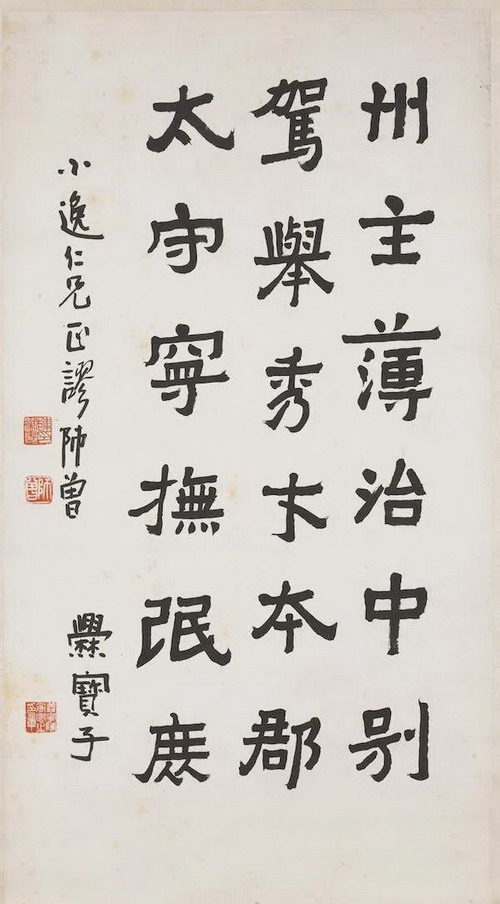 州主薄治中别
駕舉秀才本郡
太守寧撫氓庶
小逸仁兄正謬 師曾
爨寶子